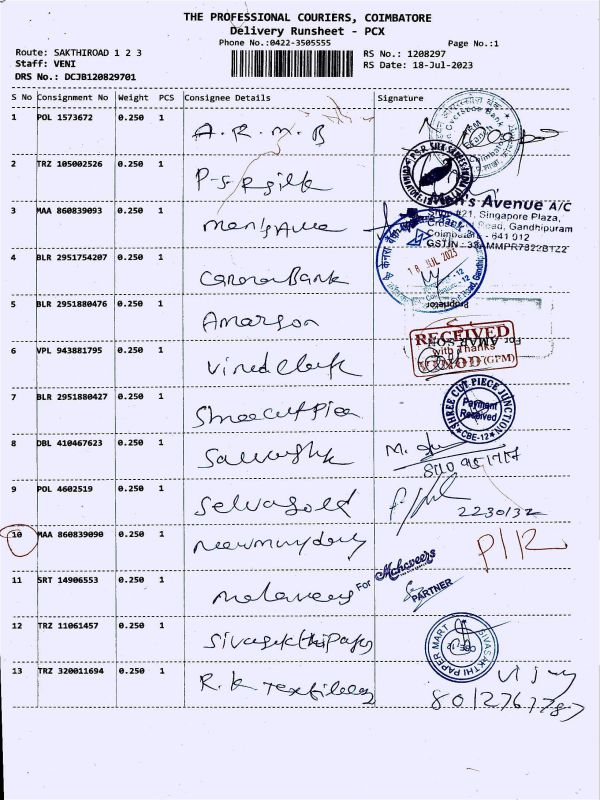 THE PROFESSIONAL COURIERS, COIMBATORE
Delivery Runsheet - PCX
Phone No.:0422-3505555
Page No.:1
Route: SAKTHIROAD 1 2 3
RS No.: 1208297
Staff: VENI
RS Date: 18-Jul-2023
DRS No.: DCJB120829701
S No Consignment No Weight PCS Consignee Details Signature
1 POL 1573672 0.250 1 A.R.M.B
2 TRZ 105002526 0.250 1 P.S.R silk
3 MAA 860839093 0.250 1 men's Ave
's Avenue A/C
#21, Singapore Plaza,
Road, Gandhipuram
Coimbatore - 641 012
GSTIN : 33
4 BLR 2951754207 0.250 1 Canara Bank
18 JUL 2023
Proprietor
5 BLR 2951880476 0.250 1 Amarson
For AMAR SON
RECEIVED
with Thanks
VINOD (GPM)
6 VPL 943881795 0.250 1
7 BLR 2951880427 0.250 1 Shree cut Piece
SHREE CUT-PIECE JUNCTION
Payment
Received
CBE-12
8 DBL 410467623 0.250 1
M.
9 POL 4602519 0.250 1 Selvagold
2230132
10 MAA 860839090 0.250 1
P/R
11 SRT 14906553 0.250 1
For Mahaveers
PARTNER
12 TRZ 11061457 0.250 1 Sivasakthi Paper
SIVASAKTHI PAPER MART
CBE-12
13 TRZ 320011694 0.250 1 R.K Textiles
Vijay